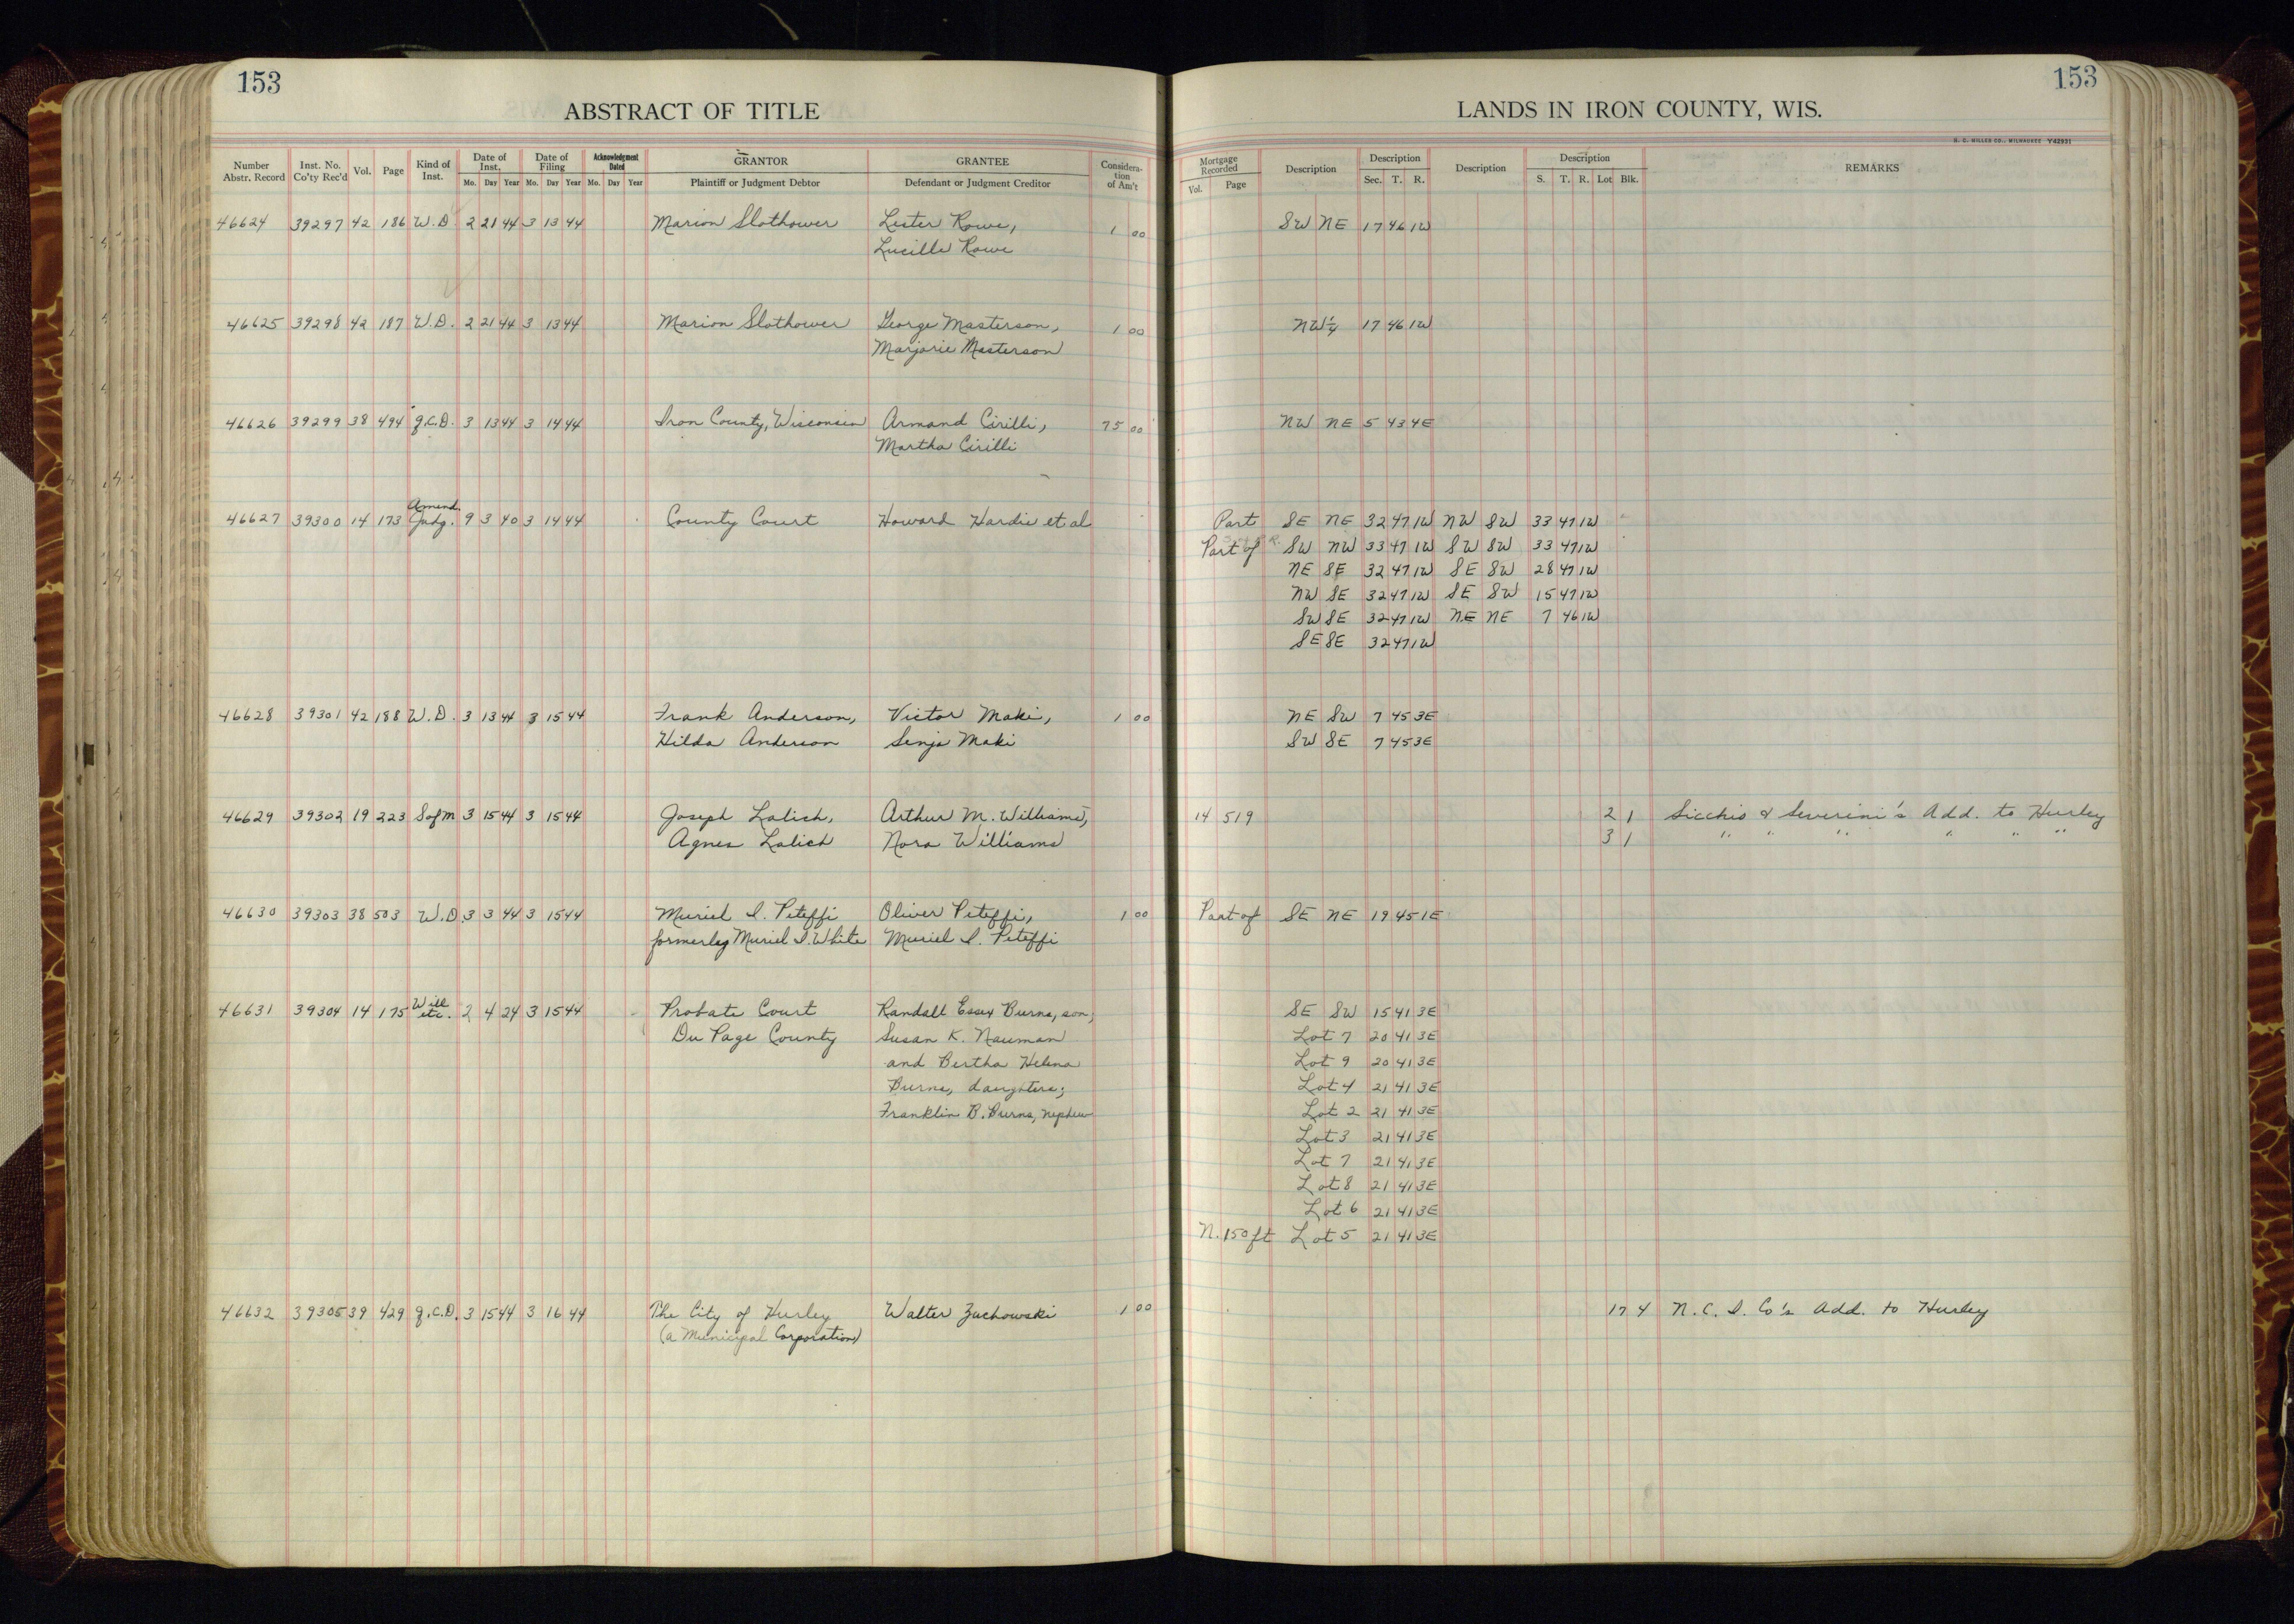 153
ABSTRACT OF TITLE
Number Abstr. Record | Inst. No. Co'ty Rec'd | Vol. | Page | Kind of Inst. | Date of Inst. Mo. Day Year | Date of Filing Mo. Day Year | Acknowledgment Dated Mo. Day Year | GRANTOR Plaintiff or Judgment Debtor | GRANTEE Defendant or Judgment Creditor | Considera-tion of Am't
46624 39297 42 186 W.D. 2 21 44 3 13 44 Marion Slothower Lester Rowe, 1 00
Lucille Rowe
46625 39298 42 187 W.D. 2 21 44 3 13 44 Marion Slothower George Masterson, 1 00
Marjorie Masterson
46626 39299 38 494 q.C.D. 3 13 44 3 14 44 Iron County, Wisconsin Armand Cirilli, 75 00
Martha Cirilli
46627 39300 14 173 Amend. Judg. 9 3 40 3 14 44 County Court Howard Hardie et al
46628 39301 42 188 W.D. 3 13 44 3 15 44 Frank Anderson, Victor Maki, 1 00
Hilda Anderson Senja Maki
46629 39302 19 223 S of M 3 15 44 3 15 44 Joseph Lalich, Arthur M. Williams,
Agnes Lalich Nora Williams
46630 39303 38 503 W.D. 3 3 44 3 15 44 Muriel I. Piteffi Oliver Piteffi, 1 00
formerly Muriel I. White Muriel I. Piteffi
46631 39304 14 175 Will etc. 2 4 24 3 15 44 Probate Court Randall Essex Burns, son,
Du Page County Susan K. Nauman
and Bertha Helena
Burns, daughters;
Franklin B. Burns, nephew
46632 39305 39 429 q.C.D. 3 15 44 3 16 44 The City of Hurley Walter Zuchowski 1 00
(a Municipal Corporation)
153
LANDS IN IRON COUNTY, WIS.
H. C. MILLER CO., MILWAUKEE Y42931
Mortgage Recorded Vol. Page | Description | Description Sec. T. R. | Description | Description S. T. R. Lot Blk. | REMARKS
SW NE 17 46 1W
NW¼ 17 46 1W
NW NE 5 43 4E
Part SE NE 32 47 1W NW SW 33 47 1W
Part of SW NW 33 47 1W SW SW 33 47 1W
NE SE 32 47 1W SE SW 28 47 1W
NW SE 32 47 1W SE SW 15 47 1W
SW SE 32 47 1W NE NE 7 46 1W
SE SE 32 47 1W
NE SW 7 45 3E
SW SE 7 45 3E
14 519 2 1 Sicchio & Severini's Add. to Hurley
3 1 " " " " " "
Part of SE NE 19 45 1E
SE SW 15 41 3E
Lot 7 20 41 3E
Lot 9 20 41 3E
Lot 4 21 41 3E
Lot 2 21 41 3E
Lot 3 21 41 3E
Lot 7 21 41 3E
Lot 8 21 41 3E
Lot 6 21 41 3E
N. 150 ft Lot 5 21 41 3E
17 4 N.C.I. Co's Add. to Hurley